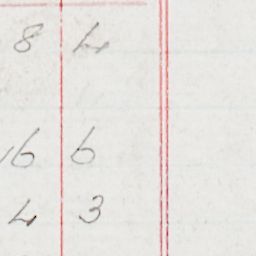 8 4
16 6
4 3